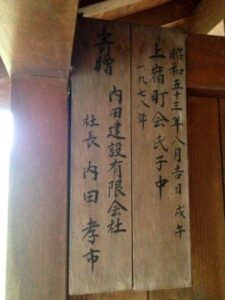 昭和五十三年八月吉日 戊午
上宿町会氏子中
一九七八年
寄贈 内田建設有限会社
社長 内田孝市